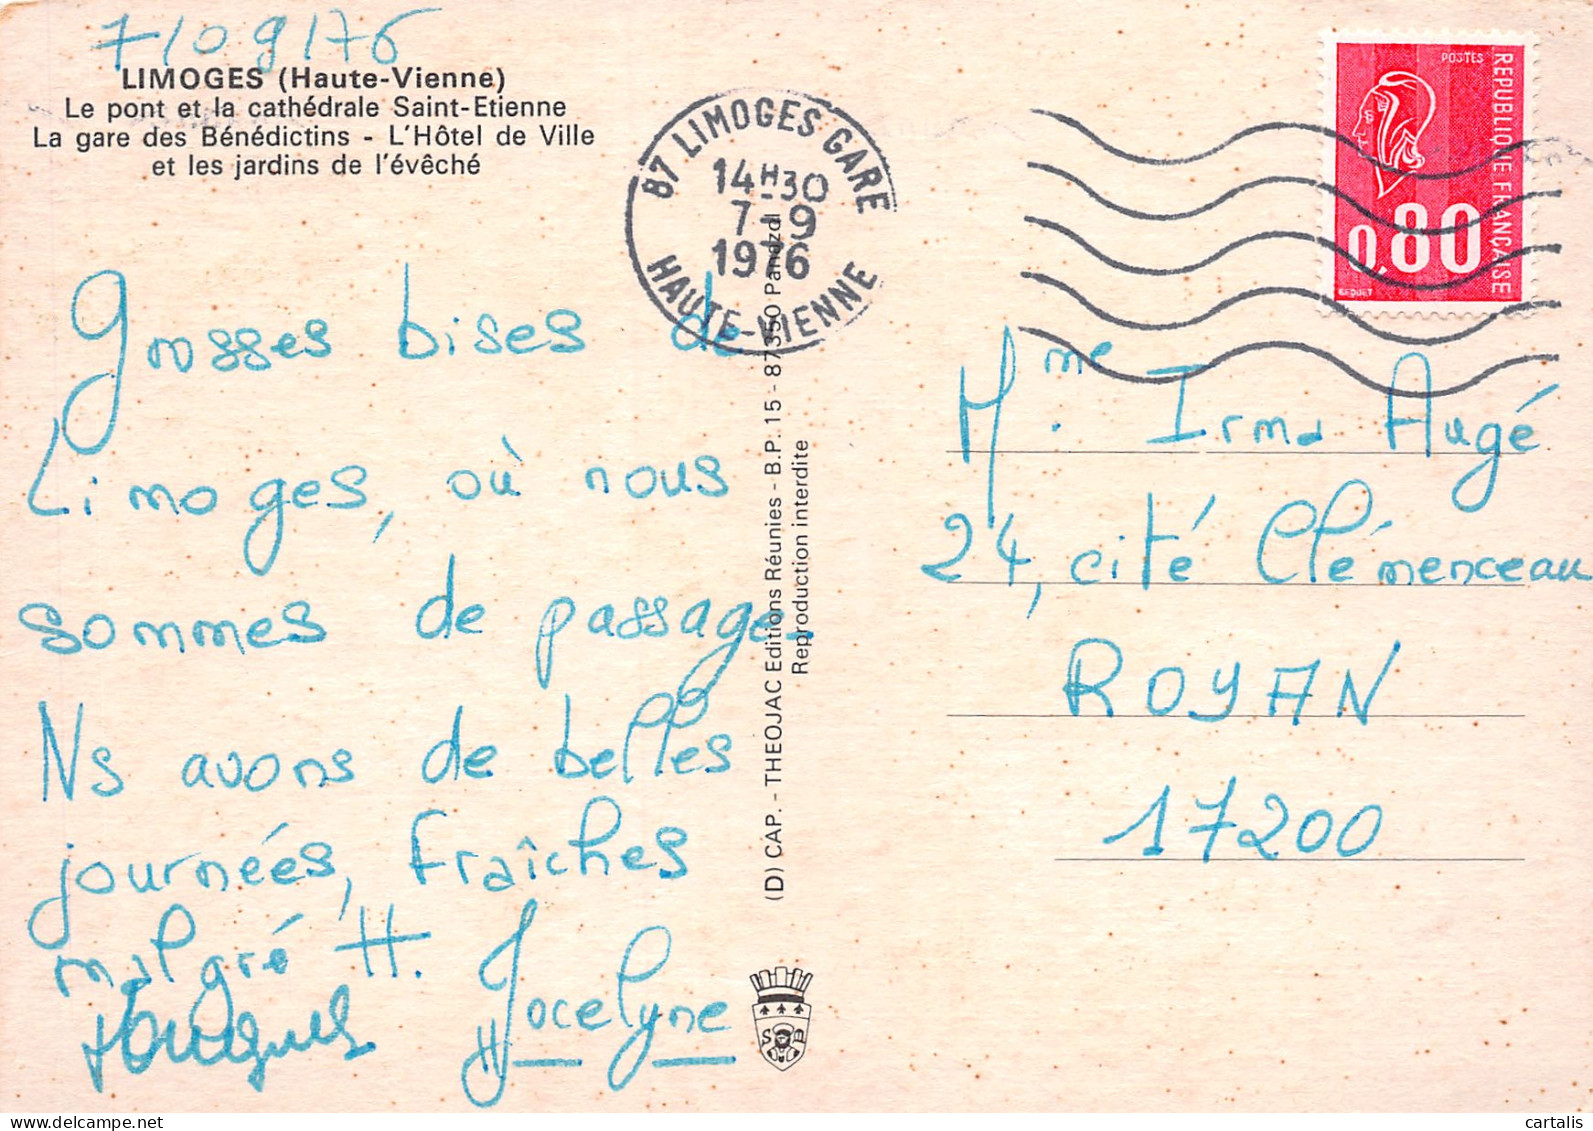 7/09/76
LIMOGES (Haute-Vienne)
Le pont et la cathédrale Saint-Etienne
La gare des Bénédictins - L'Hôtel de Ville
et les jardins de l'évêché
87 LIMOGES GARE
14H30
7-9
1976
HAUTE-VIENNE
POSTES
REPUBLIQUE FRANÇAISE
0,80
BEQUET
Grosses bises de
Limoges, où nous
sommes de passage_
Ns avons de belles
journées, fraîches
malgré tt.
Jocelyne
(D) CAP. - THEOJAC Editions Réunies - B.P. 15 - 87350 Panazol
Reproduction interdite
Mme. Irma Augé
24, cité Clémenceau
ROYAN
17200
cartalis
delcampe.net